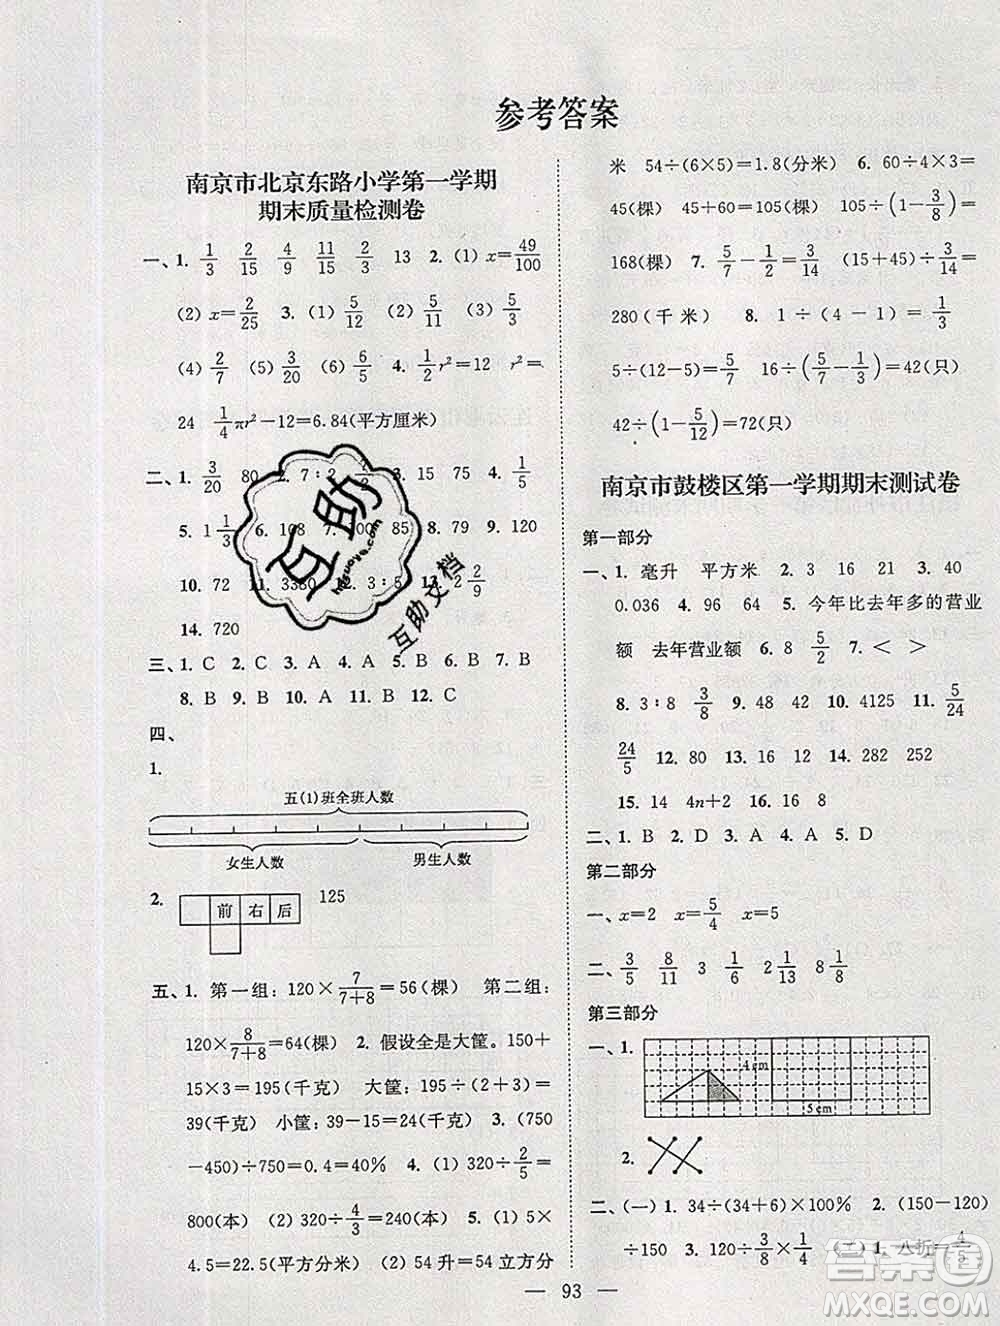 参考答案
南京市北京东路小学第一学期
期末质量检测卷
一、1. 1/3 2/15 4/9 11/15 2/3 13 2. (1) x=49/100
(2) x=2/25 3. (1) 5/12 (2) 5/11 (3) 5/3
(4) 2/7 (5) 3/20 (6) 6/5 4. 1/2 r²=12 r²=
24 1/4 πr²-12=6.84(平方厘米)
二、1. 3/20 80 2. 7∶2 7/2 3. 15 75 4. 1/5
5. 1 1/3 6. 108 7. 85 8. 79 9. 120
10. 72 11. 3380 12. 3∶5 13. 2 2/9
14. 720
三、1. C 2. C 3. A 4. A 5. B 6. B 7. B
8. B 9. B 10. A 11. B 12. C
四、
1.
五(1)班全班人数
女生人数 男生人数
2. 前 右 后 125
五、1. 第一组：120×7/(7+8)=56(棵) 第二组：
120×8/(7+8)=64(棵) 2. 假设全是大筐。150+
15×3=195(千克) 大筐：195÷(2+3)=
39(千克) 小筐：39-15=24(千克) 3. (750
-450)÷750=0.4=40% 4. (1) 320÷2/5=
800(本) (2) 320÷4/3=240(本) 5. (1) 5×
4.5=22.5(平方分米) (2) 54升=54立方分
米 54÷(6×5)=1.8(分米) 6. 60÷4×3=
45(棵) 45+60=105(棵) 105÷(1-3/8)=
168(棵) 7. 5/7-1/2=3/14 (15+45)÷3/14=
280(千米) 8. 1÷(4-1)=1/3
5÷(12-5)=5/7 16÷(5/7-1/3)=42(只)
42÷(1-5/12)=72(只)
南京市鼓楼区第一学期期末测试卷
第一部分
一、1. 毫升 平方米 2. 3 16 21 3. 40
0.036 4. 96 64 5. 今年比去年多的营业
额 去年营业额 6. 8 5/2 7. < >
8. 3∶8 3/8 9. 48 42 10. 4125 11. 5/24
24/5 12. 80 13. 16 12 14. 282 252
15. 14 4n+2 16. 16 8
二、1. B 2. D 3. A 4. A 5. D
第二部分
一、x=2 x=5/4 x=5
二、3/5 8/11 3 1/6 2 1/13 8 1/8
第三部分
一、1. 4cm
5cm
2.
二、(一) 1. 34÷(34+6)×100% 2. (150-120)
÷150 3. 120÷3/8×1/4 (二) 1. 八折=4/5
93
互助
huzuoye.com
互助文档
答案圈
MXQE.COM